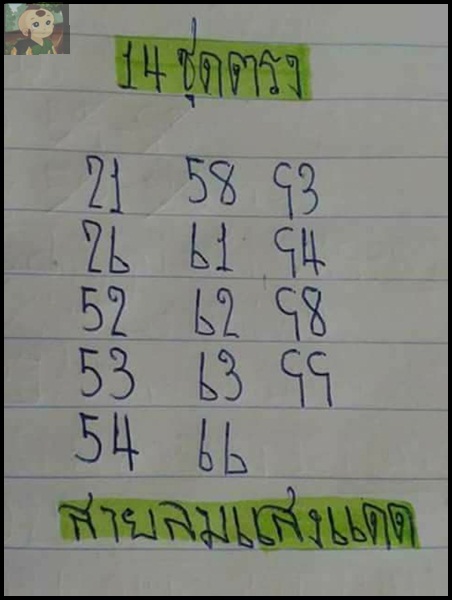 14 ชุดตรง
21 58 93
26 61 94
52 62 98
53 63 99
54 66
สายลมแสงแดด